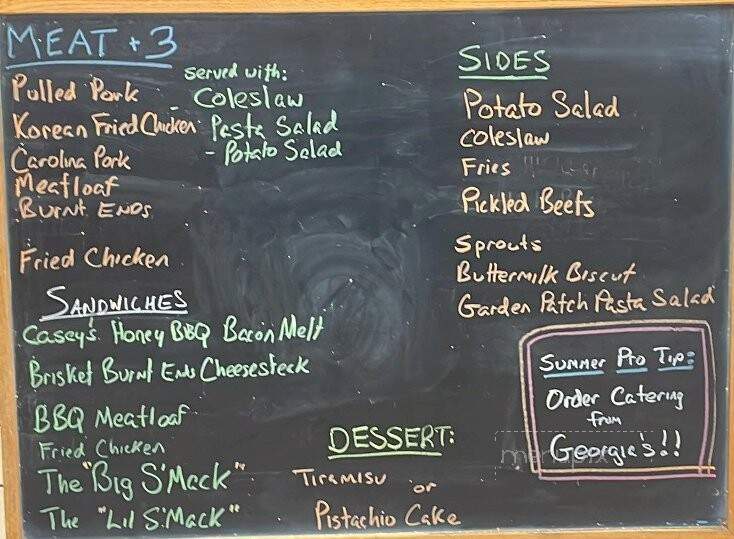 MEAT + 3
Served with:
Pulled Pork
- Coleslaw
Korean Fried Chicken
Pasta Salad
Carolina Pork
- Potato Salad
Meatloaf
Burnt Ends
Fried Chicken
SANDWICHES
Casey's Honey BBQ Bacon Melt
Brisket Burnt Ends Cheesesteak
BBQ Meatloaf
Fried Chicken
The "Big S'Mack"
The "Lil S'Mack"
SIDES
Potato Salad
Coleslaw
Fries
Pickled Beets
Sprouts
Buttermilk Biscut
Garden Patch Pasta Salad
Summer Pro Tip:
Order Catering
from
Georgia's!!
DESSERT:
Tiramisu or
Pistachio Cake